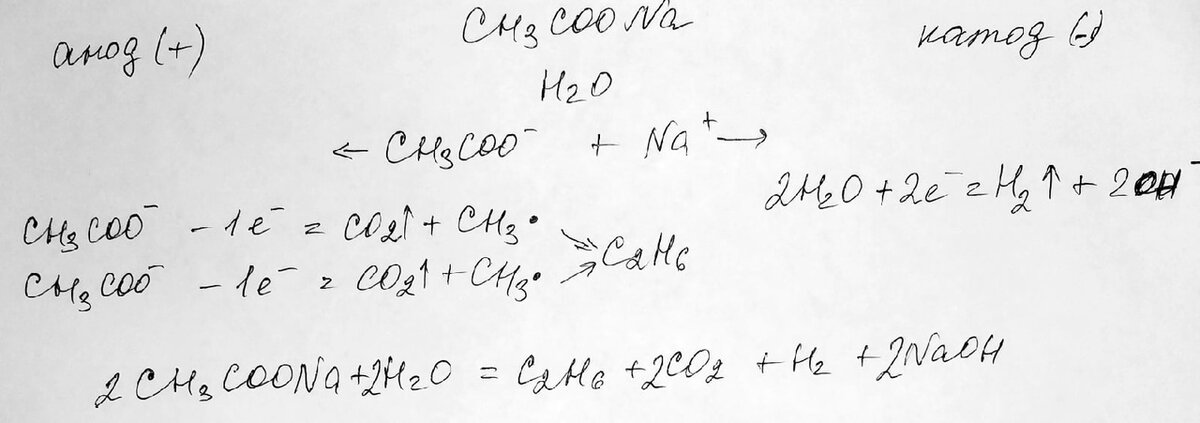 анод (+) CH3COONa катод (-)
H2O
← CH3COO⁻ + Na⁺ →
2H2O + 2e⁻ = H2↑ + 2OH⁻
CH3COO⁻ - 1e⁻ = CO2↑ + CH3•
CH3COO⁻ - 1e⁻ = CO2↑ + CH3•
C2H6
2CH3COONa + 2H2O = C2H6 + 2CO2 + H2 + 2NaOH